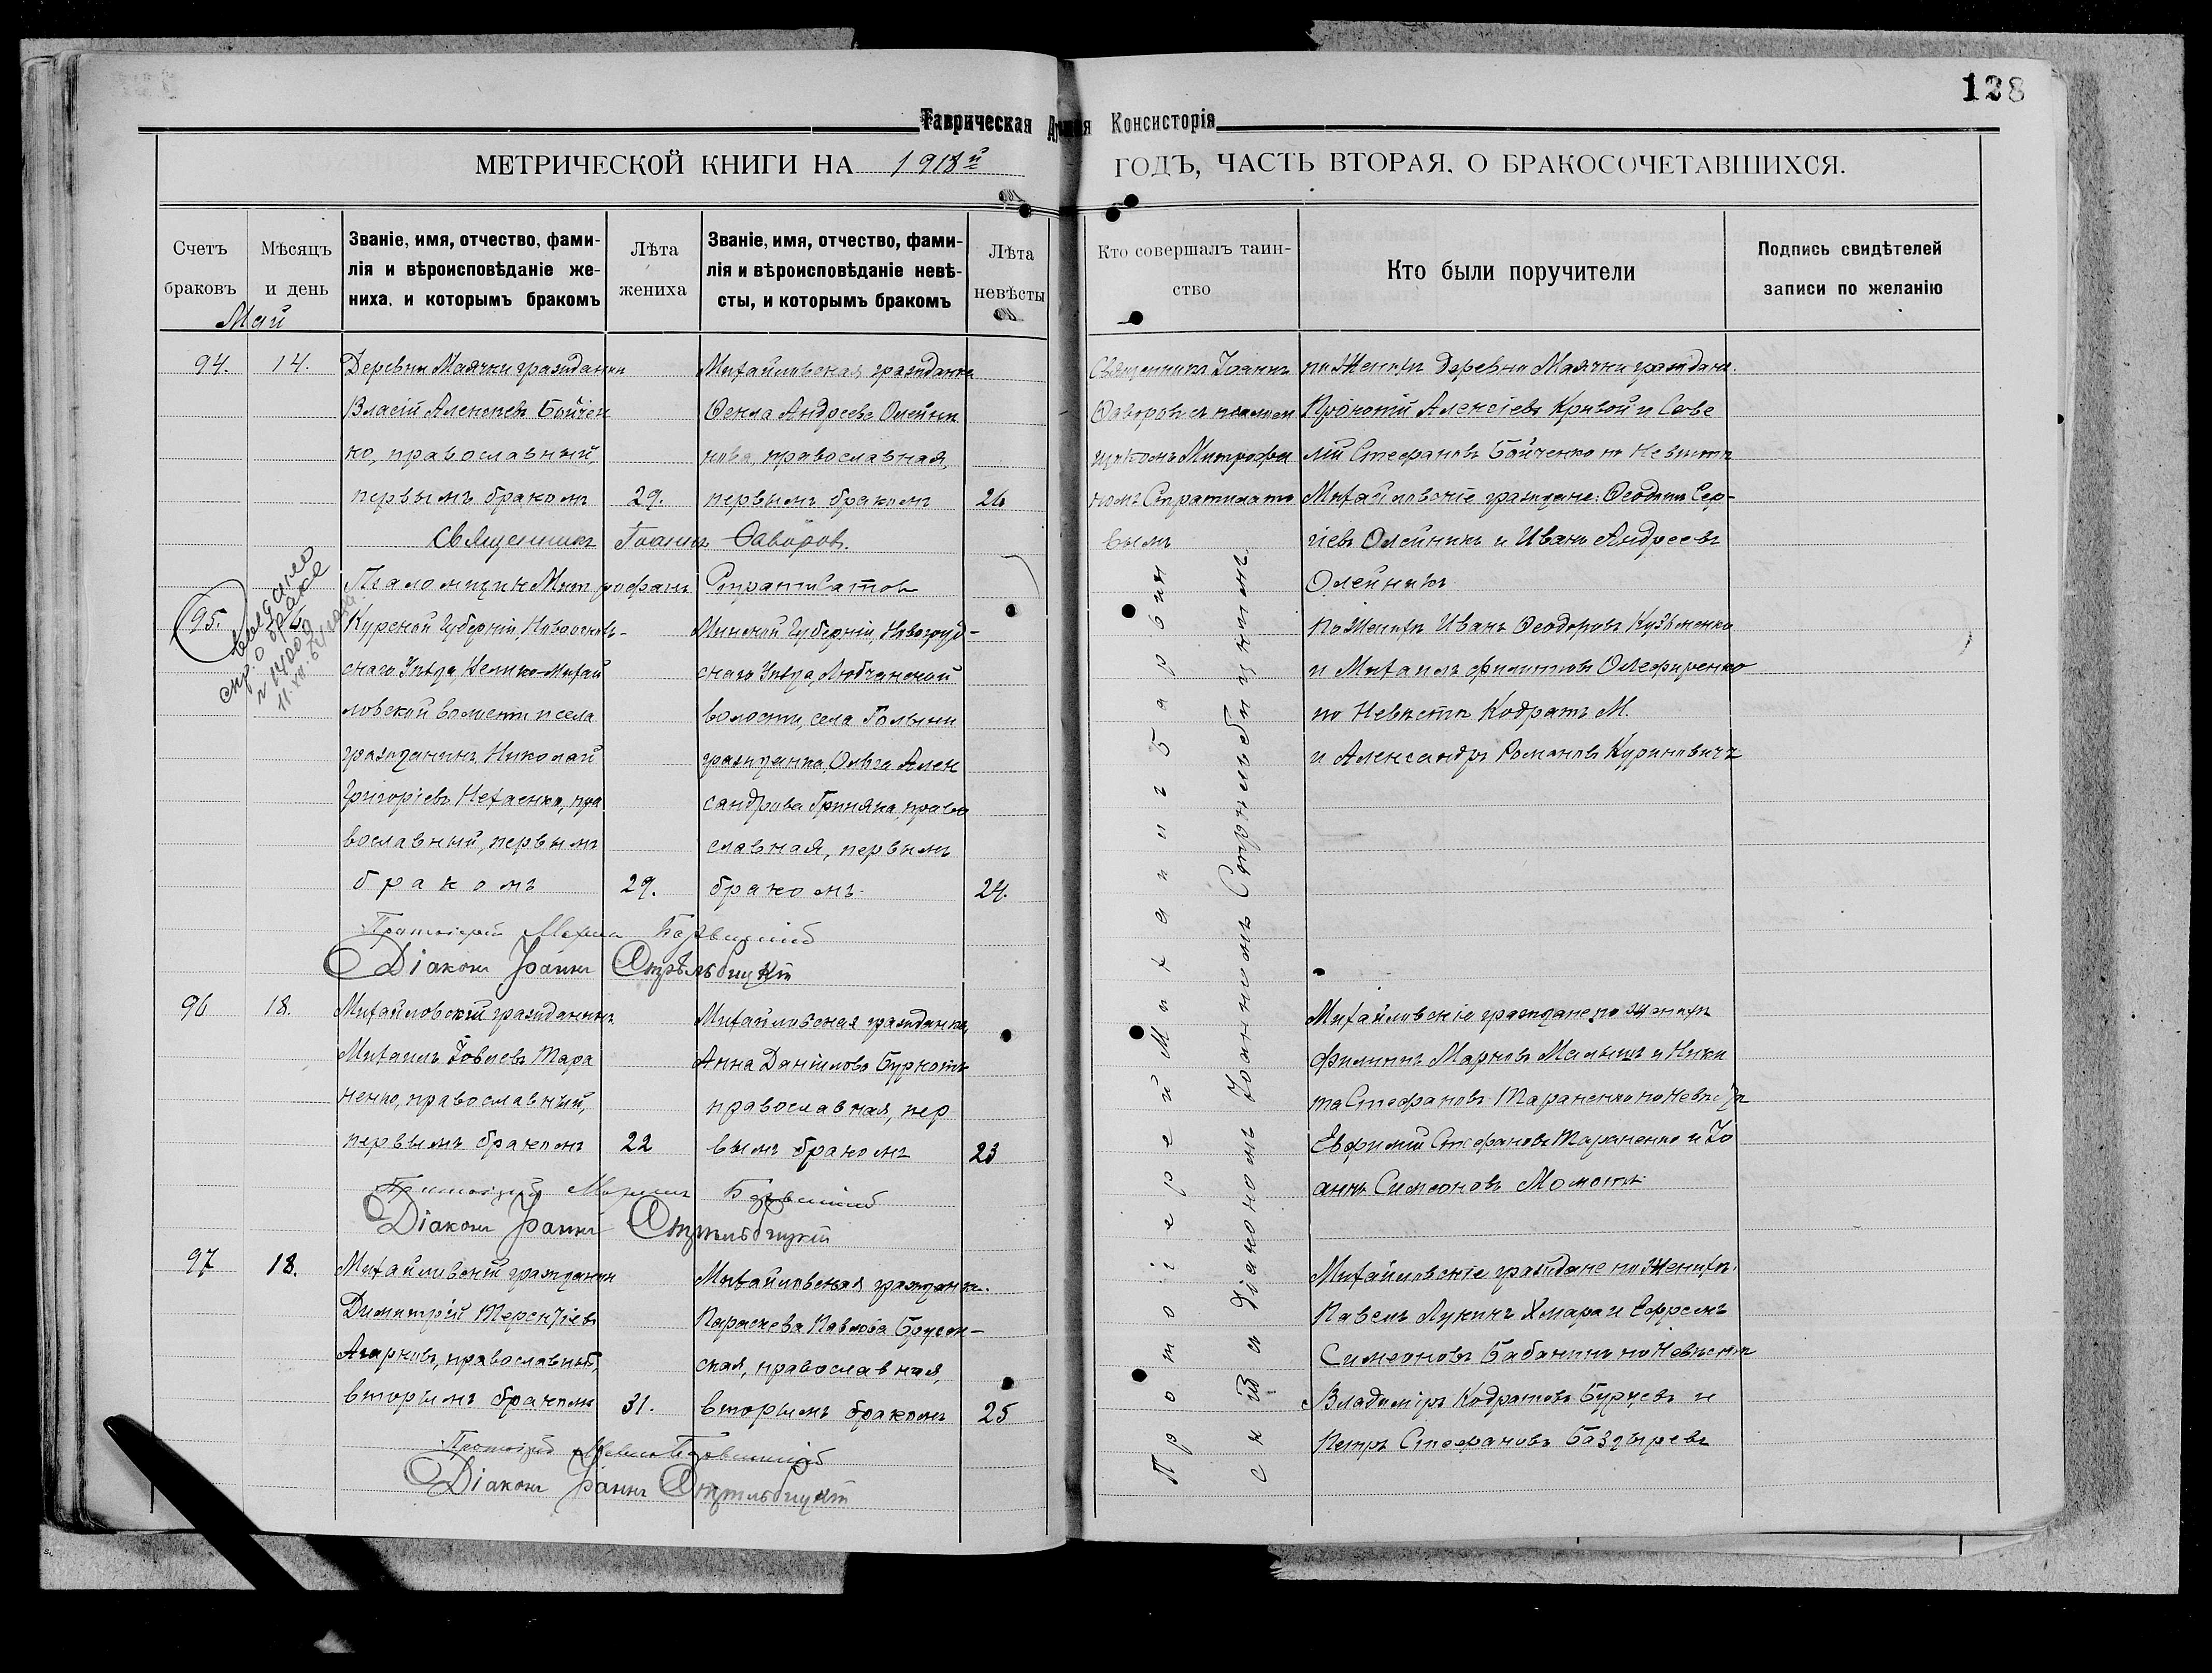 128
Таврическая Консисторія
МЕТРИЧЕСКОЙ КНИГИ НА 1918й
ГОДЪ, ЧАСТЬ ВТОРАЯ, О БРАКОСОЧЕТАВШИХСЯ.
Счетъ браковъ
Мѣсяцъ и день
Званіе, имя, отчество, фами-
лія и вѣроисповѣданіе же-
ниха, и которымъ бракомъ
Лѣта жениха
Званіе, имя, отчество, фами-
лія и вѣроисповѣданіе невѣ-
сты, и которымъ бракомъ
Лѣта невѣсты
Кто совершалъ таин-
ство
Кто были поручители
Подпись свидѣтелей
записи по желанію
Май
94.
14.
Деревни Маячки гражданин
Власій Алексіевъ Бойчен
ко, православный,
первымъ бракомъ
29.
Михайловская гражданка
Ѳекла Андреева Олейни
кова, православная,
первымъ бракомъ
26
Священникъ Іоаннъ
Ѳаворовъ съ псалом
щикомъ Митрофа
номъ Стратилато
вымъ
по Женихѣ Деревни Маячки граждане
Алексіевъ Кривой и Саве
лій Стефановъ Бойченко по Невѣстѣ
Михайловскіе граждане: Сер-
гіевъ Олейникъ и Иванъ Андреевъ
Олейникъ
Священникъ Іоаннъ Ѳаворовъ.
Псаломщикъ Митрофанъ Стратилатов
95.
выдано
спр. о браке
n 1400
Курской Губерніи, Новооскол-
скаго Уѣзда, Велико-Михай
ловской волости и села
гражданинъ Николай
Григоріевъ Нехаенко, пра
вославный, первымъ
бракомъ
29.
Минской Губерніи, Новогруд-
скаго Уѣзда, Любчанской
волости, села
гражданка, Ольга Алек
сандрова Гриняка, право
славная, первымъ
бракомъ.
24.
по Женихѣ Иванъ Ѳеодоровъ Кузьменко
и Михаилъ Филиповъ Олефиренко
по Невѣстѣ Кодратъ М.
и Александръ Романовъ Куриновичъ
Діаконъ Іоаннъ Стрѣльбицкій
96
18.
Михайловскій гражданинъ
Михаилъ Іовлевъ Тара
ненко, православный,
первымъ бракомъ
22
Михайловская гражданка
Анна Данилова Буркотъ
православная, пер
вымъ бракомъ
23
Михайловскіе граждане по Женихѣ
Филиппъ Марковъ Малышъ и Ники
та Стефановъ Тараненко по Невѣстѣ
Евфимій Стефановъ Тараненко и Іо
аннъ Симеоновъ Момотъ
Діаконъ Іоаннъ Стрѣльбицкій
97
18.
Михайловскій гражданин
Димитрій Терентіевъ
Агарковъ, православный,
вторымъ бракомъ
31.
Михайловская гражданка.
Параскева Павлова
ская, православная,
вторымъ бракомъ
25
Михайловскіе граждане по Женихѣ.
Павелъ Лукинъ Хмара и Ефремъ
Симеоновъ Бабанинъ по Невѣстѣ
Владиміръ Кодратовъ Бурцевъ и
Петръ Стефановъ Баздыревъ
Діаконъ Іоаннъ Стрѣльбицкій
Протоіерей Михаилъ
скій съ діакономъ Іоанномъ Стрѣльбицкимъ